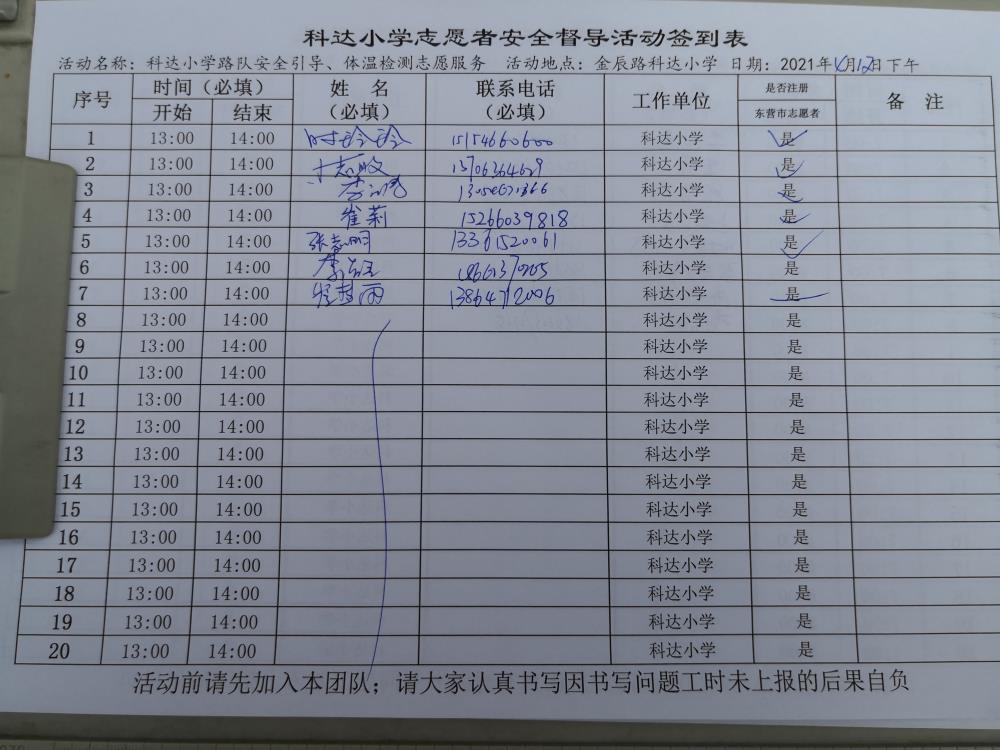 科达小学志愿者安全督导活动签到表
活动名称：科达小学路队安全引导、体温检测志愿服务 活动地点：金辰路科达小学 日期：2021年 月12日下午
序号 时间（必填） 姓 名（必填） 联系电话（必填） 工作单位 是否注册 备 注
开始 结束 东营市志愿者
1 13:00 14:00 时玲玲 15154660600 科达小学 是
2 13:00 14:00 13706364629 科达小学 是
3 13:00 14:00 科达小学 是
4 13:00 14:00 崔莉 15266039818 科达小学 是
5 13:00 14:00 张志明 13361520061 科达小学 是
6 13:00 14:00 科达小学 是
7 13:00 14:00 13864712006 科达小学 是
8 13:00 14:00 科达小学 是
9 13:00 14:00 科达小学 是
10 13:00 14:00 科达小学 是
11 13:00 14:00 科达小学 是
12 13:00 14:00 科达小学 是
13 13:00 14:00 科达小学 是
14 13:00 14:00 科达小学 是
15 13:00 14:00 科达小学 是
16 13:00 14:00 科达小学 是
17 13:00 14:00 科达小学 是
18 13:00 14:00 科达小学 是
19 13:00 14:00 科达小学 是
20 13:00 14:00 科达小学 是
活动前请先加入本团队；请大家认真书写因书写问题工时未上报的后果自负